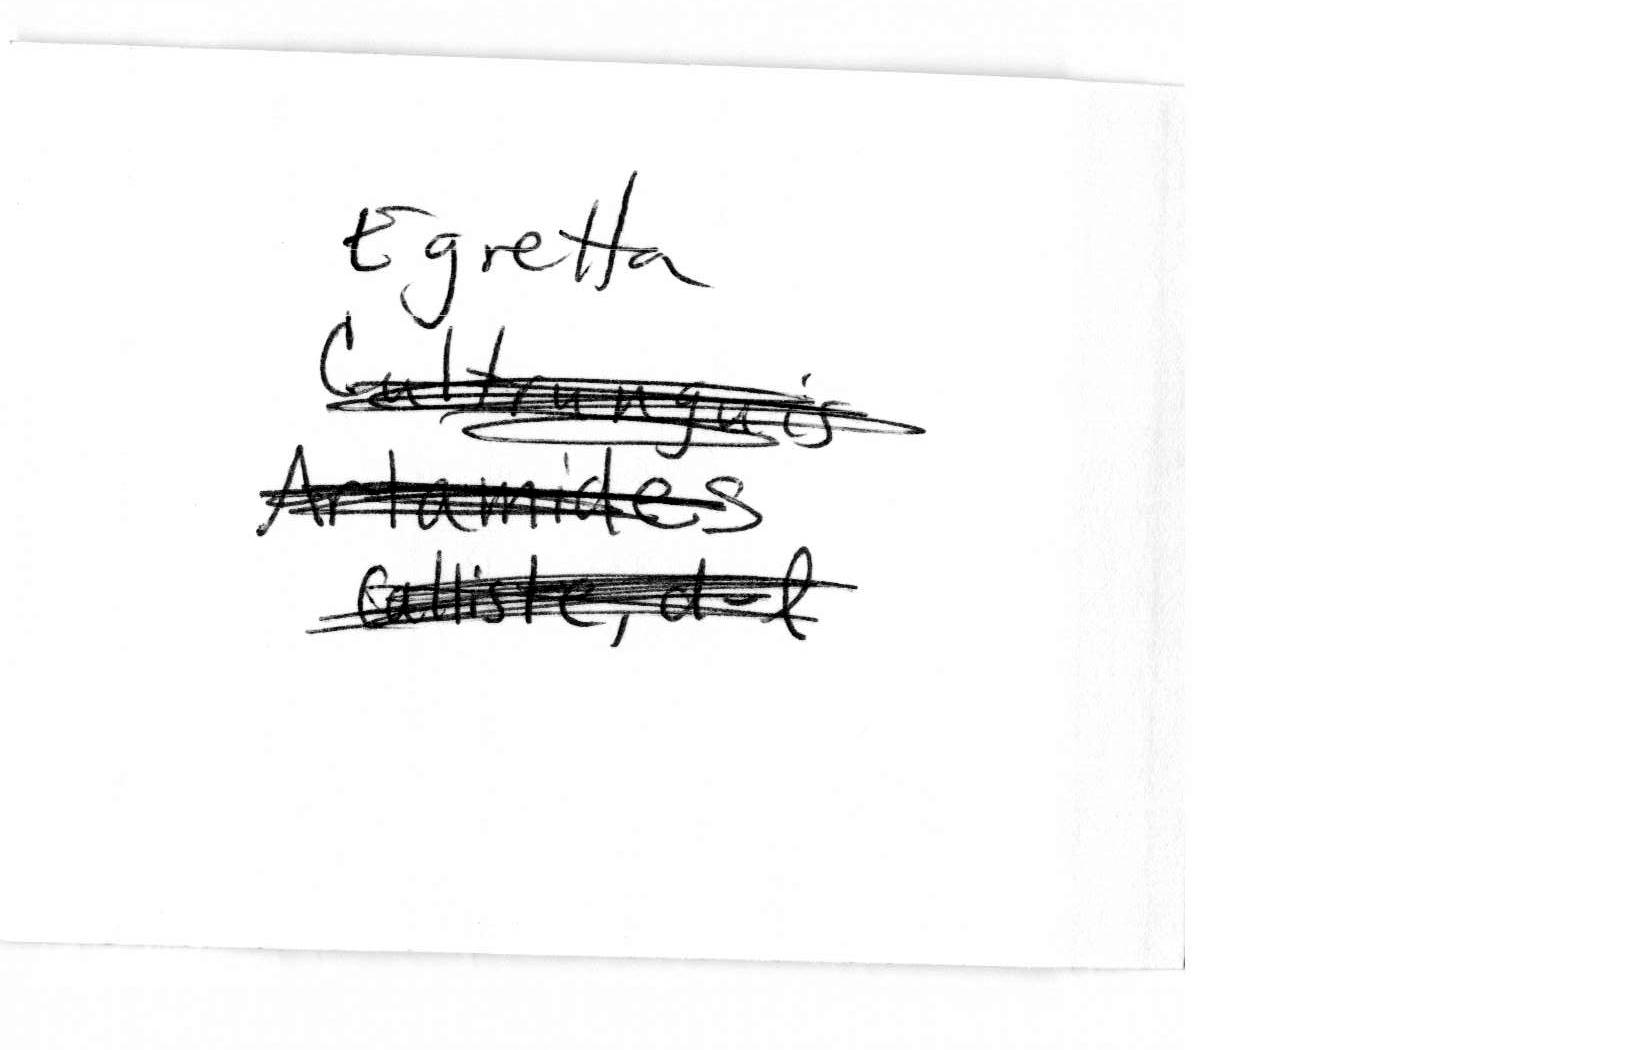 Egretta
Cultrunguis
Artamides
Calliste, d-l